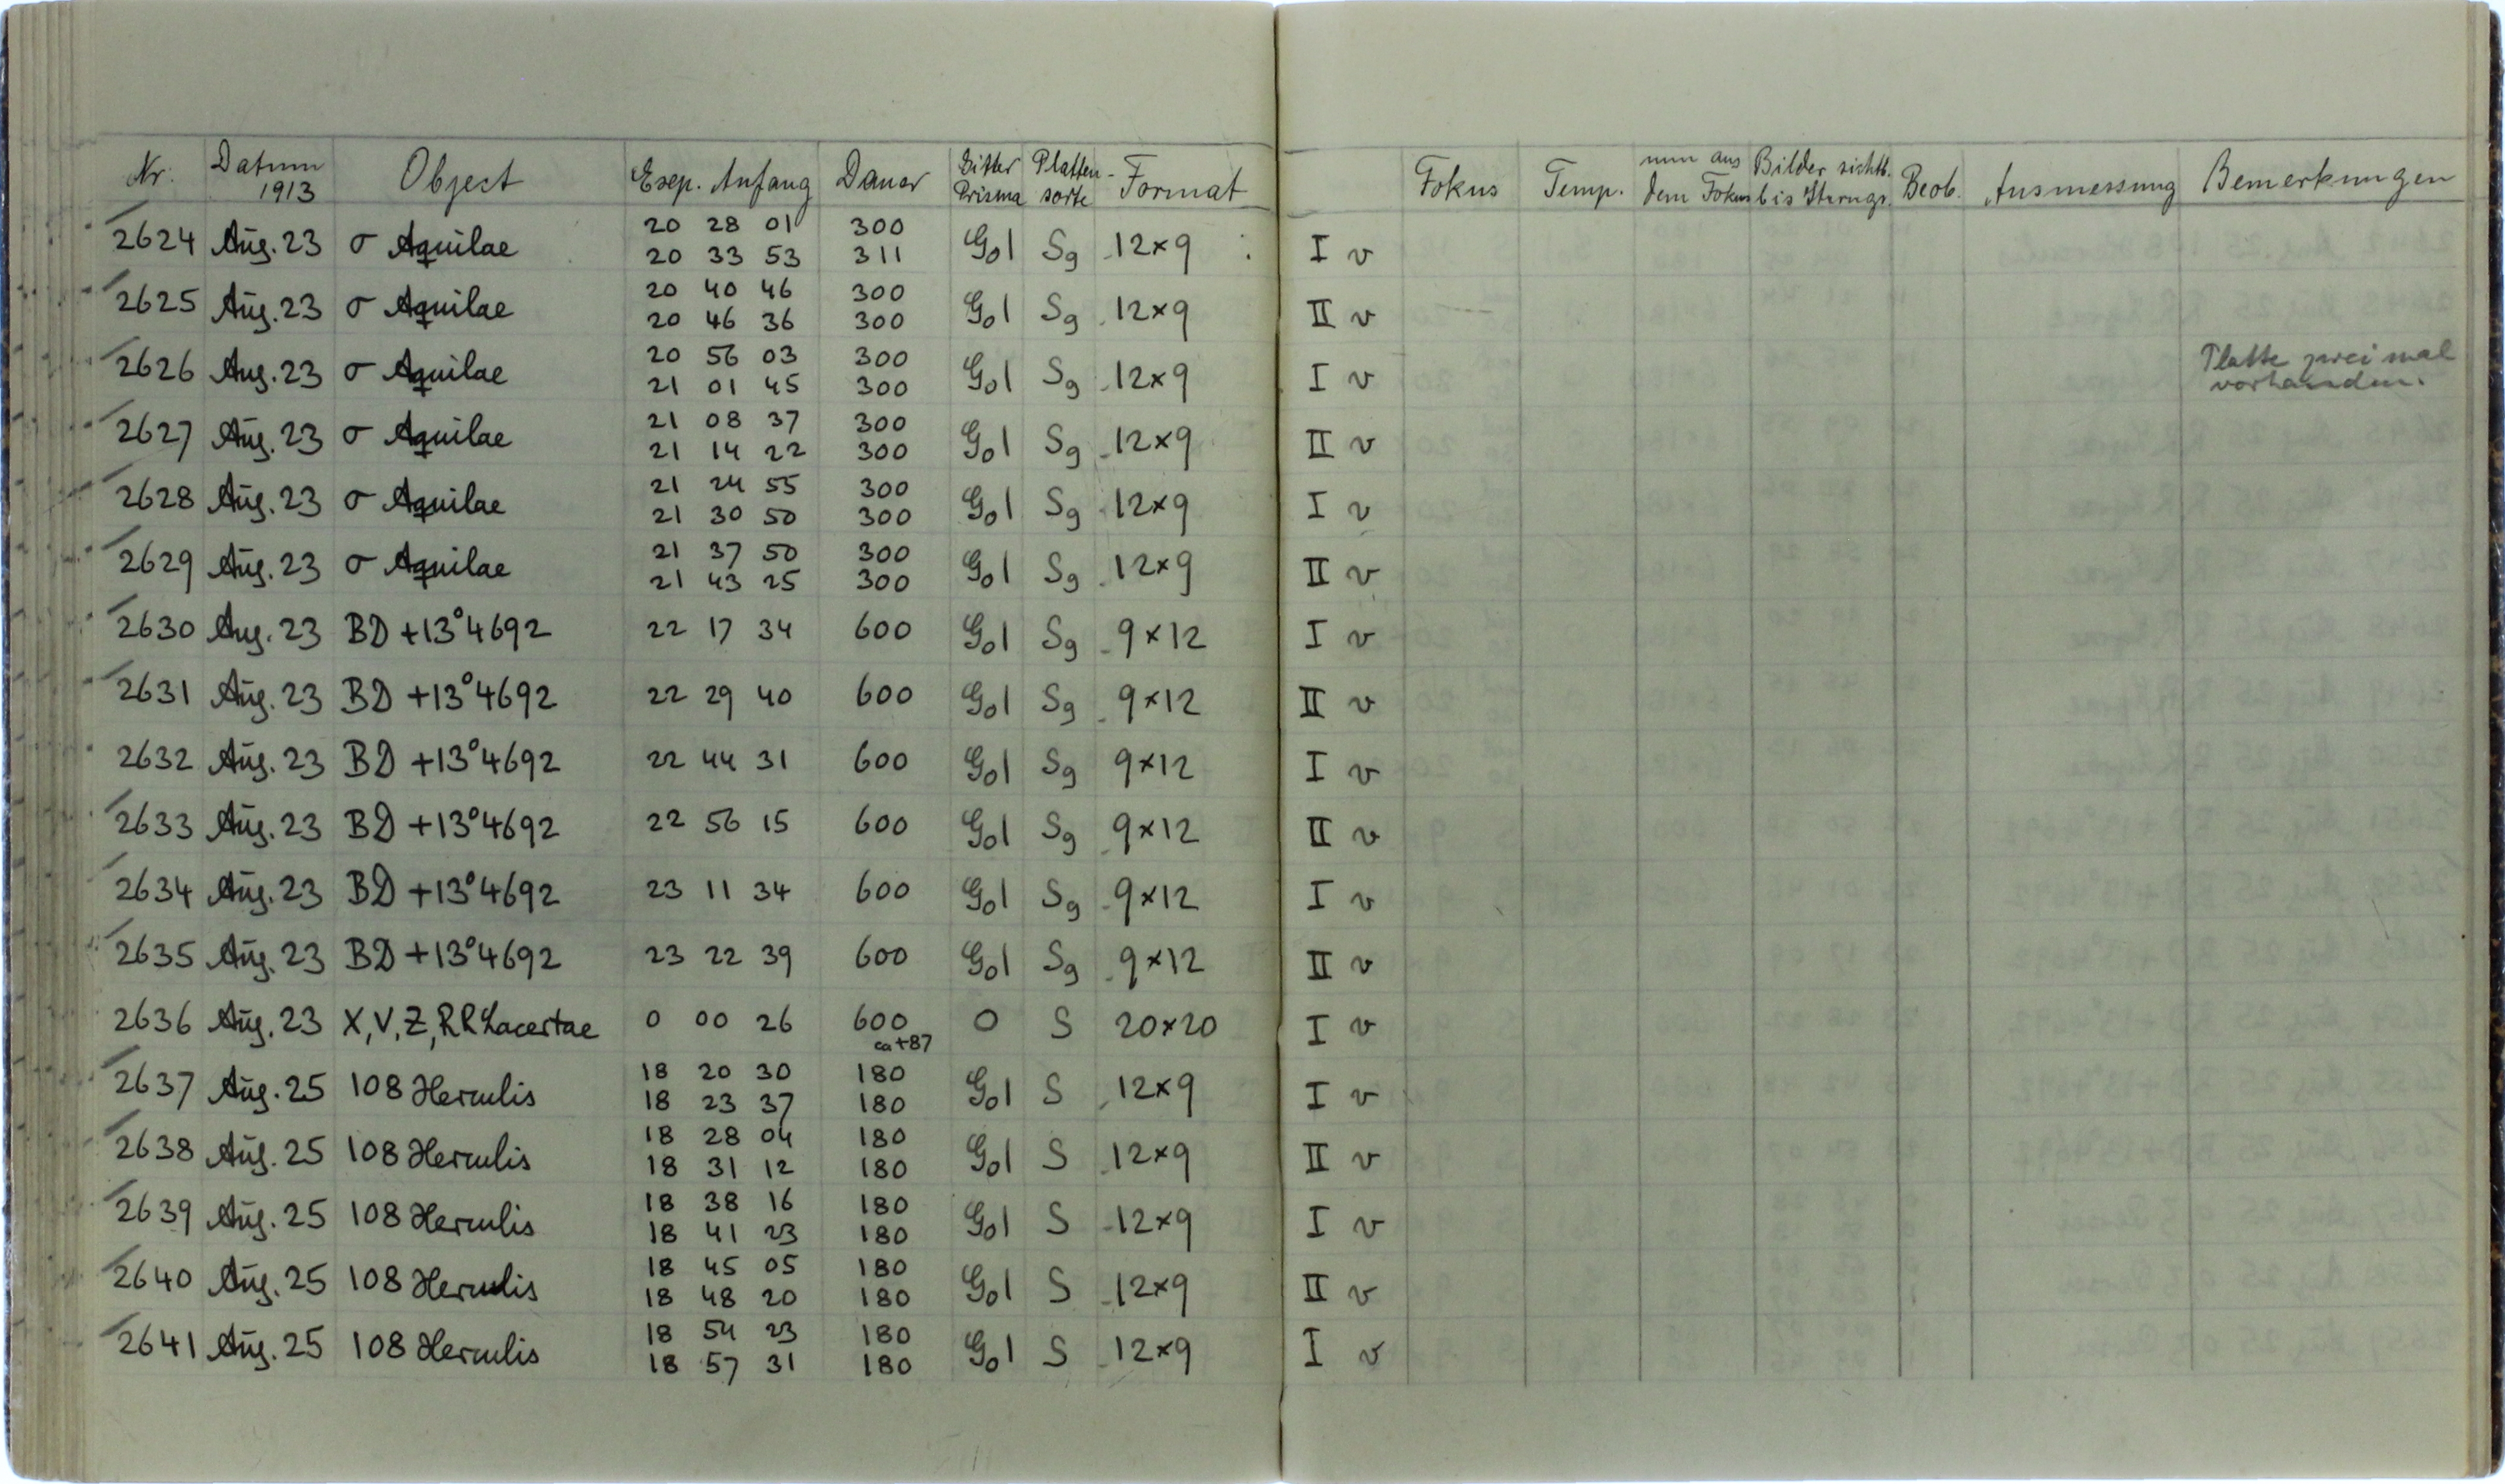 Nr. Datum 1913 Object Exp. Anfang Dauer Gitter Prisma Platten-sorte Format Fokus Temp. mm aus dem Fokus Bilder sichtb. bis Sterngr. Beob. Ausmessung Bemerkungen
2624 Aug. 23 σ Aquilae 20 28 01 300 G01 Sg 12×9 I v
20 33 53 311
2625 Aug. 23 σ Aquilae 20 40 46 300 G01 Sg 12×9 II v
20 46 36 300
2626 Aug. 23 σ Aquilae 20 56 03 300 G01 Sg 12×9 I v Platte zweimal
21 01 45 300 vorhanden.
2627 Aug. 23 σ Aquilae 21 08 37 300 G01 Sg 12×9 II v
21 14 22 300
2628 Aug. 23 σ Aquilae 21 24 55 300 G01 Sg 12×9 I v
21 30 50 300
2629 Aug. 23 σ Aquilae 21 37 50 300 G01 Sg 12×9 II v
21 43 25 300
2630 Aug. 23 BD +13°4692 22 17 34 600 G01 Sg 9×12 I v
2631 Aug. 23 BD +13°4692 22 29 40 600 G01 Sg 9×12 II v
2632 Aug. 23 BD +13°4692 22 44 31 600 G01 Sg 9×12 I v
2633 Aug. 23 BD +13°4692 22 56 15 600 G01 Sg 9×12 II v
2634 Aug. 23 BD +13°4692 23 11 34 600 G01 Sg 9×12 I v
2635 Aug. 23 BD +13°4692 23 22 39 600 G01 Sg 9×12 II v
2636 Aug. 23 X, V, Z, RR Lacertae 0 00 26 600 0 S 20×20 I v
ca +87
2637 Aug. 25 108 Herculis 18 20 30 180 G01 S 12×9 I v
18 23 37 180
2638 Aug. 25 108 Herculis 18 28 04 180 G01 S 12×9 II v
18 31 12 180
2639 Aug. 25 108 Herculis 18 38 16 180 G01 S 12×9 I v
18 41 23 180
2640 Aug. 25 108 Herculis 18 45 05 180 G01 S 12×9 II v
18 48 20 180
2641 Aug. 25 108 Herculis 18 54 23 180 G01 S 12×9 I v
18 57 31 180